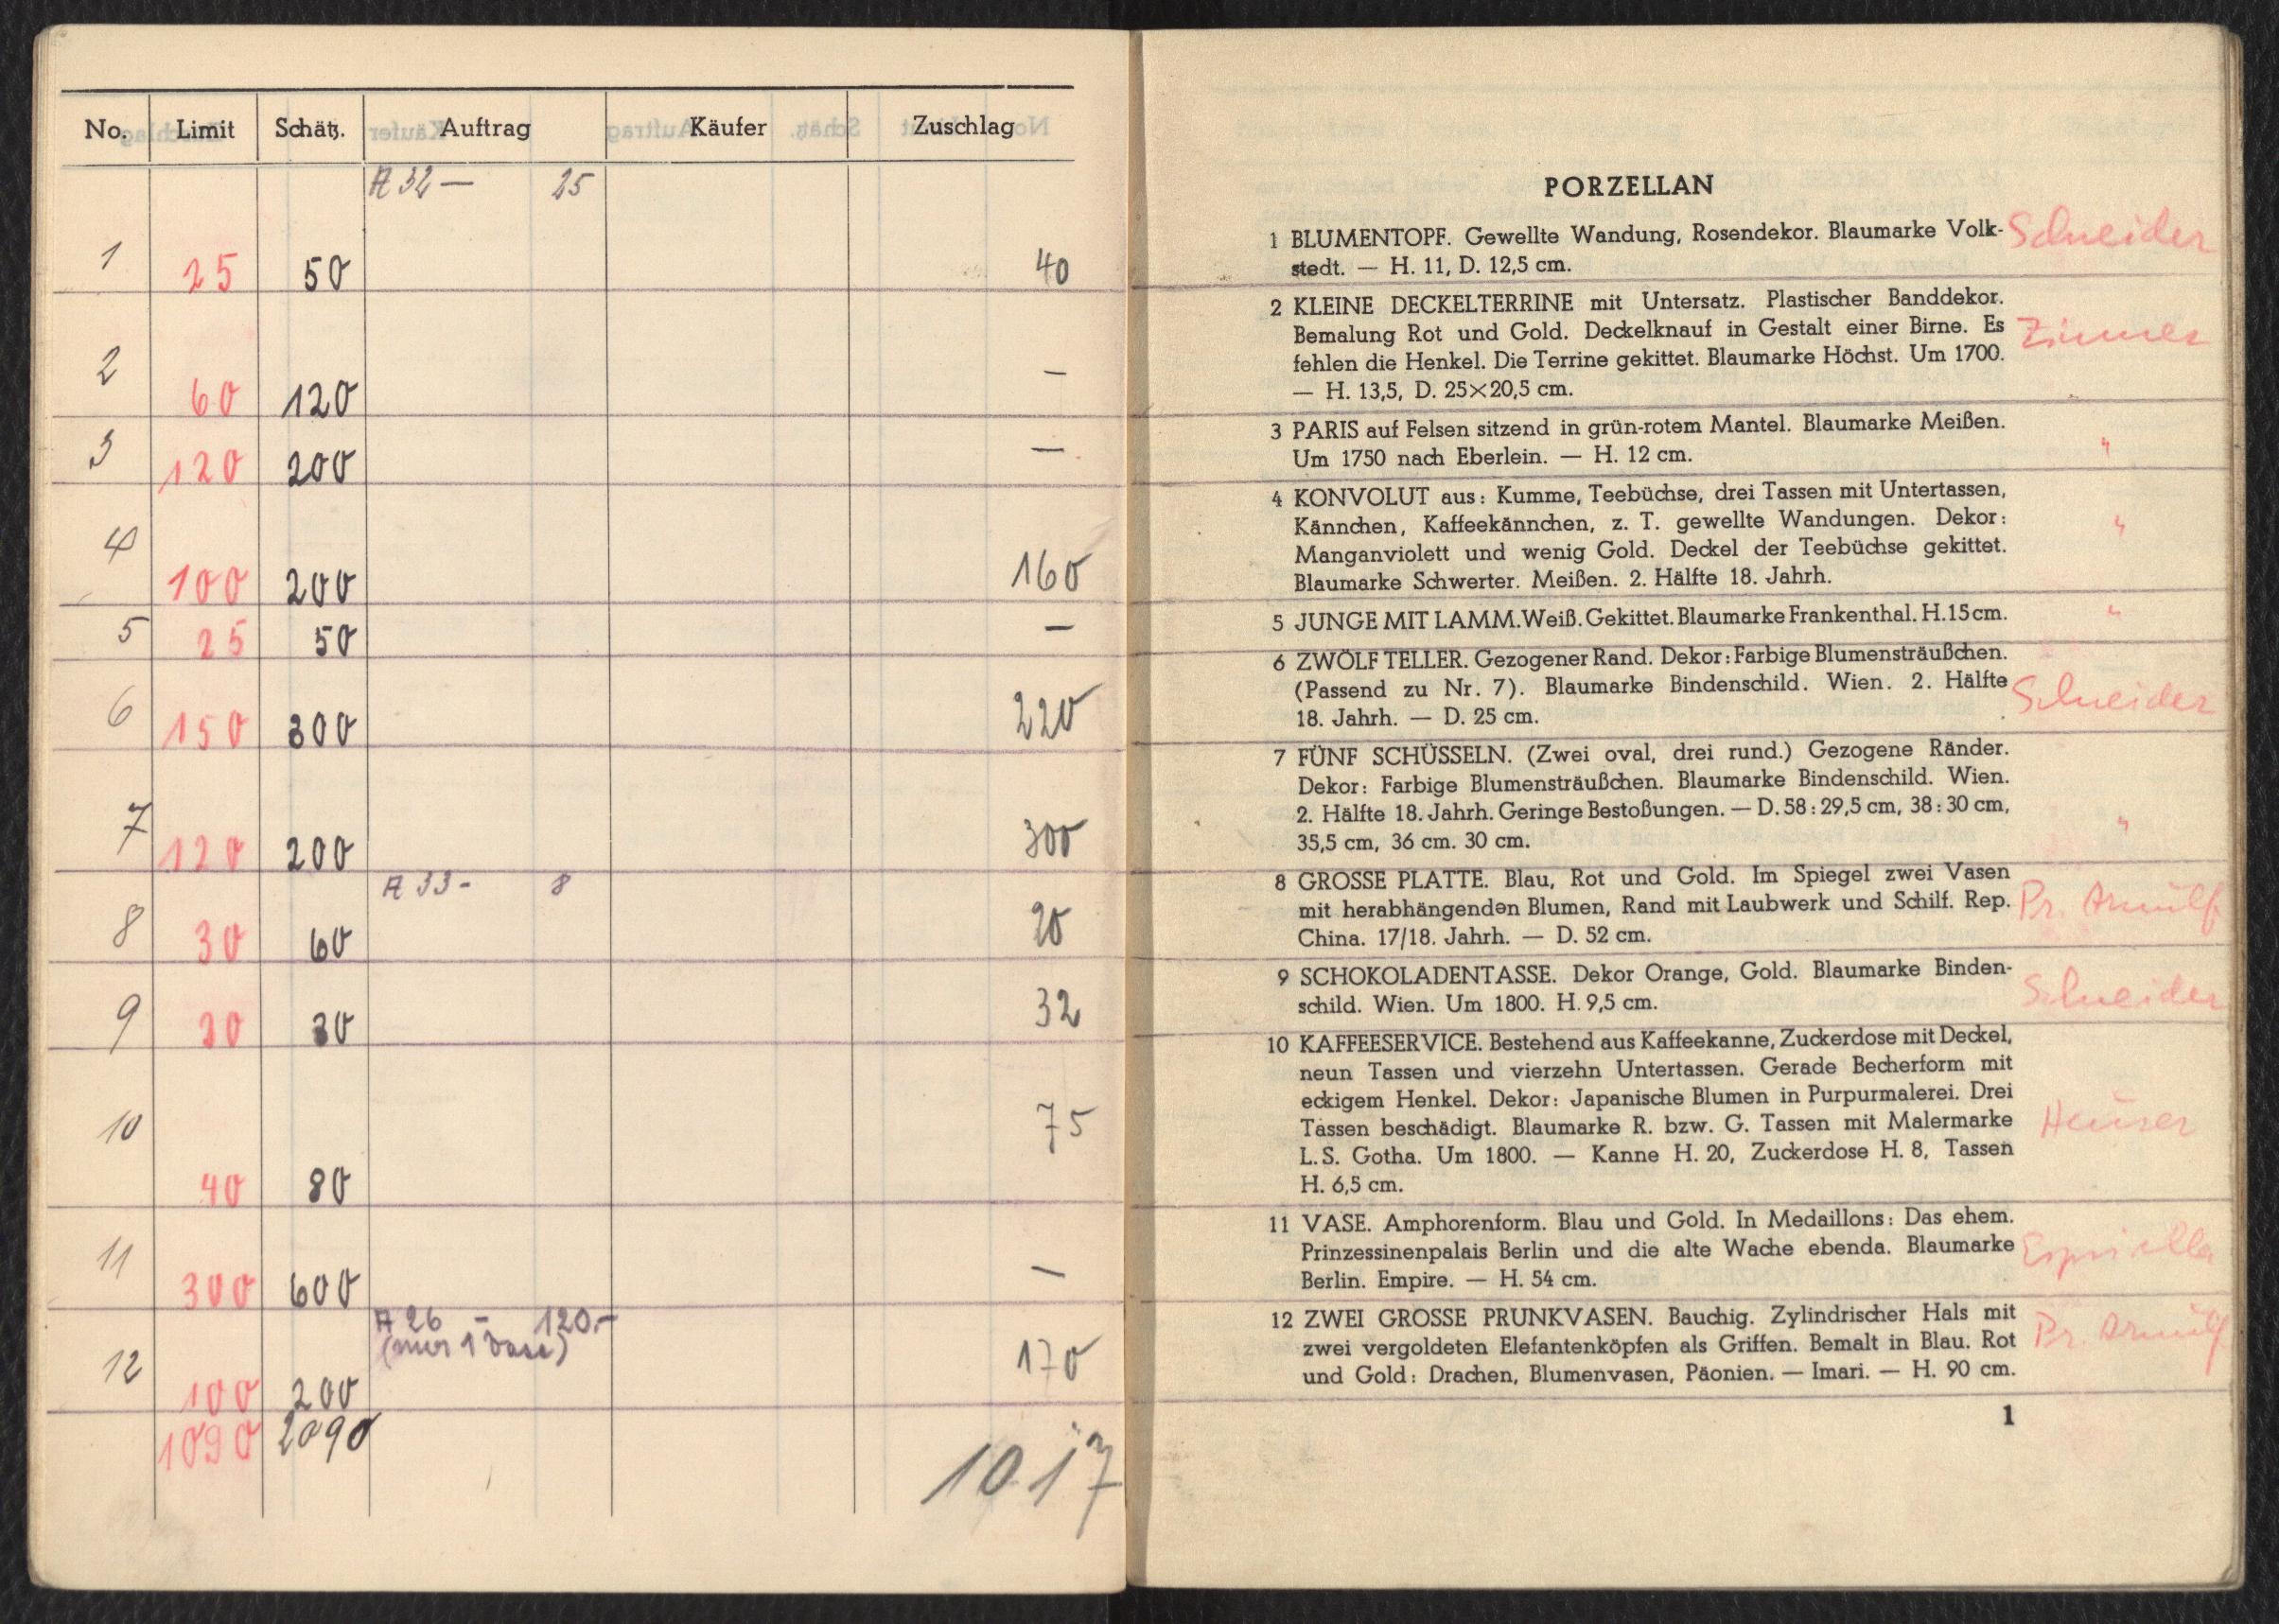 No. Limit Schätz. Auftrag Käufer Zuschlag
A 32 — 25
1 25 50 40
2 60 120 —
3 120 200 —
4 100 200 160
5 25 50 —
6 150 300 220
7 120 200 300
A 33 - 8
8 30 60 20
9 20 30 32
10 40 80 75
11 300 600 —
A 26 — 120.—
(nur 1 Vase)
12 100 200 170
1090 2090
1017
PORZELLAN
1 BLUMENTOPF. Gewellte Wandung, Rosendekor. Blaumarke Volk- Schneider
stedt. — H. 11, D. 12,5 cm.
2 KLEINE DECKELTERRINE mit Untersatz. Plastischer Banddekor.
Bemalung Rot und Gold. Deckelknauf in Gestalt einer Birne. Es
fehlen die Henkel. Die Terrine gekittet. Blaumarke Höchst. Um 1700.
— H. 13,5, D. 25×20,5 cm.
3 PARIS auf Felsen sitzend in grün-rotem Mantel. Blaumarke Meißen. "
Um 1750 nach Eberlein. — H. 12 cm.
4 KONVOLUT aus: Kumme, Teebüchse, drei Tassen mit Untertassen,
Kännchen, Kaffeekännchen, z. T. gewellte Wandungen. Dekor: "
Manganviolett und wenig Gold. Deckel der Teebüchse gekittet.
Blaumarke Schwerter. Meißen. 2. Hälfte 18. Jahrh.
5 JUNGE MIT LAMM. Weiß. Gekittet. Blaumarke Frankenthal. H. 15 cm. "
6 ZWÖLF TELLER. Gezogener Rand. Dekor: Farbige Blumensträußchen.
(Passend zu Nr. 7). Blaumarke Bindenschild. Wien. 2. Hälfte Schneider
18. Jahrh. — D. 25 cm.
7 FÜNF SCHÜSSELN. (Zwei oval, drei rund.) Gezogene Ränder.
Dekor: Farbige Blumensträußchen. Blaumarke Bindenschild. Wien.
2. Hälfte 18. Jahrh. Geringe Bestoßungen. — D. 58 : 29,5 cm, 38 : 30 cm, "
35,5 cm, 36 cm. 30 cm.
8 GROSSE PLATTE. Blau, Rot und Gold. Im Spiegel zwei Vasen
mit herabhängenden Blumen, Rand mit Laubwerk und Schilf. Rep. Pr. Arnulf
China. 17/18. Jahrh. — D. 52 cm.
9 SCHOKOLADENTASSE. Dekor Orange, Gold. Blaumarke Binden- Schneider
schild. Wien. Um 1800. H. 9,5 cm.
10 KAFFEESERVICE. Bestehend aus Kaffeekanne, Zuckerdose mit Deckel,
neun Tassen und vierzehn Untertassen. Gerade Becherform mit
eckigem Henkel. Dekor: Japanische Blumen in Purpurmalerei. Drei
Tassen beschädigt. Blaumarke R. bzw. G. Tassen mit Malermarke
L. S. Gotha. Um 1800. — Kanne H. 20, Zuckerdose H. 8, Tassen
H. 6,5 cm.
11 VASE. Amphorenform. Blau und Gold. In Medaillons: Das ehem.
Prinzessinenpalais Berlin und die alte Wache ebenda. Blaumarke
Berlin. Empire. — H. 54 cm.
12 ZWEI GROSSE PRUNKVASEN. Bauchig. Zylindrischer Hals mit
zwei vergoldeten Elefantenköpfen als Griffen. Bemalt in Blau. Rot Pr. Arnulf
und Gold: Drachen, Blumenvasen, Päonien. — Imari. — H. 90 cm.
1